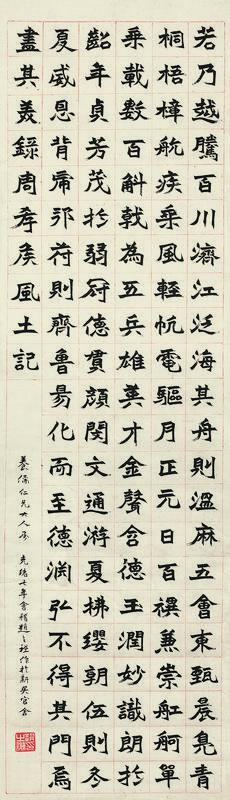 若乃越騰百川濟江泛海其舟則溫麻五會東甄晨鳧青
桐梧樟航疾乘風輕帆電驅月正元日百禩兼崇舡舸單
乘載數百斛戟為五兵雄英才金聲含德玉潤妙識朗於
齠年貞芳茂於弱冠德貫顏閔文通游夏拂纓朝伍則冬
夏威恩背虎邦苻則齊魯易化而至德渊弘不得其門焉
盡其美錄周孝侯風土記
養儒仁兄大人屬 光緒七年會稽趙之謙作於新吳官舍